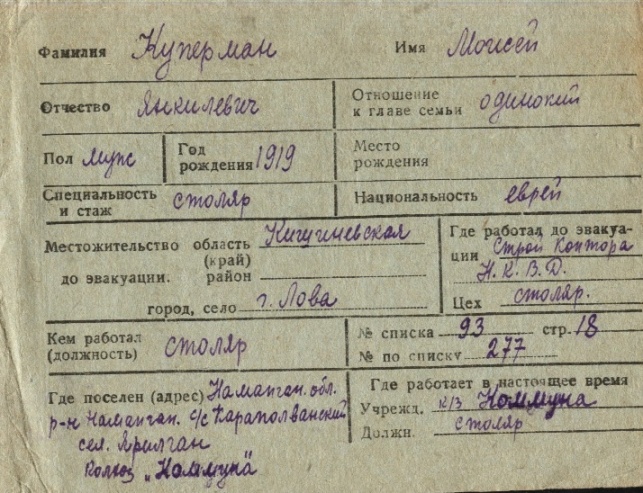 Фамилия Куперман Имя Моисей
Отчество Янкилевич Отношение к главе семьи одинокий
Пол муж Год рождения 1919 Место рождения
Специальность и стаж столяр Национальность еврей
Местожительство область (край) Кишиневская
до эвакуации. район
город, село г. Лова
Где работал до эвакуации Строй Контора
Н.К.В.Д.
Цех столяр.
Кем работал (должность) столяр
№ списка 93 стр. 18
№ по списку 277
Где поселен (адрес) Наманган. обл.
р-н Наманган. с/с Караполванский
сел. Ярилган
Колхоз „Коммуна"
Где работает в настоящее время
Учрежд. к/з Коммуна
Должн. столяр